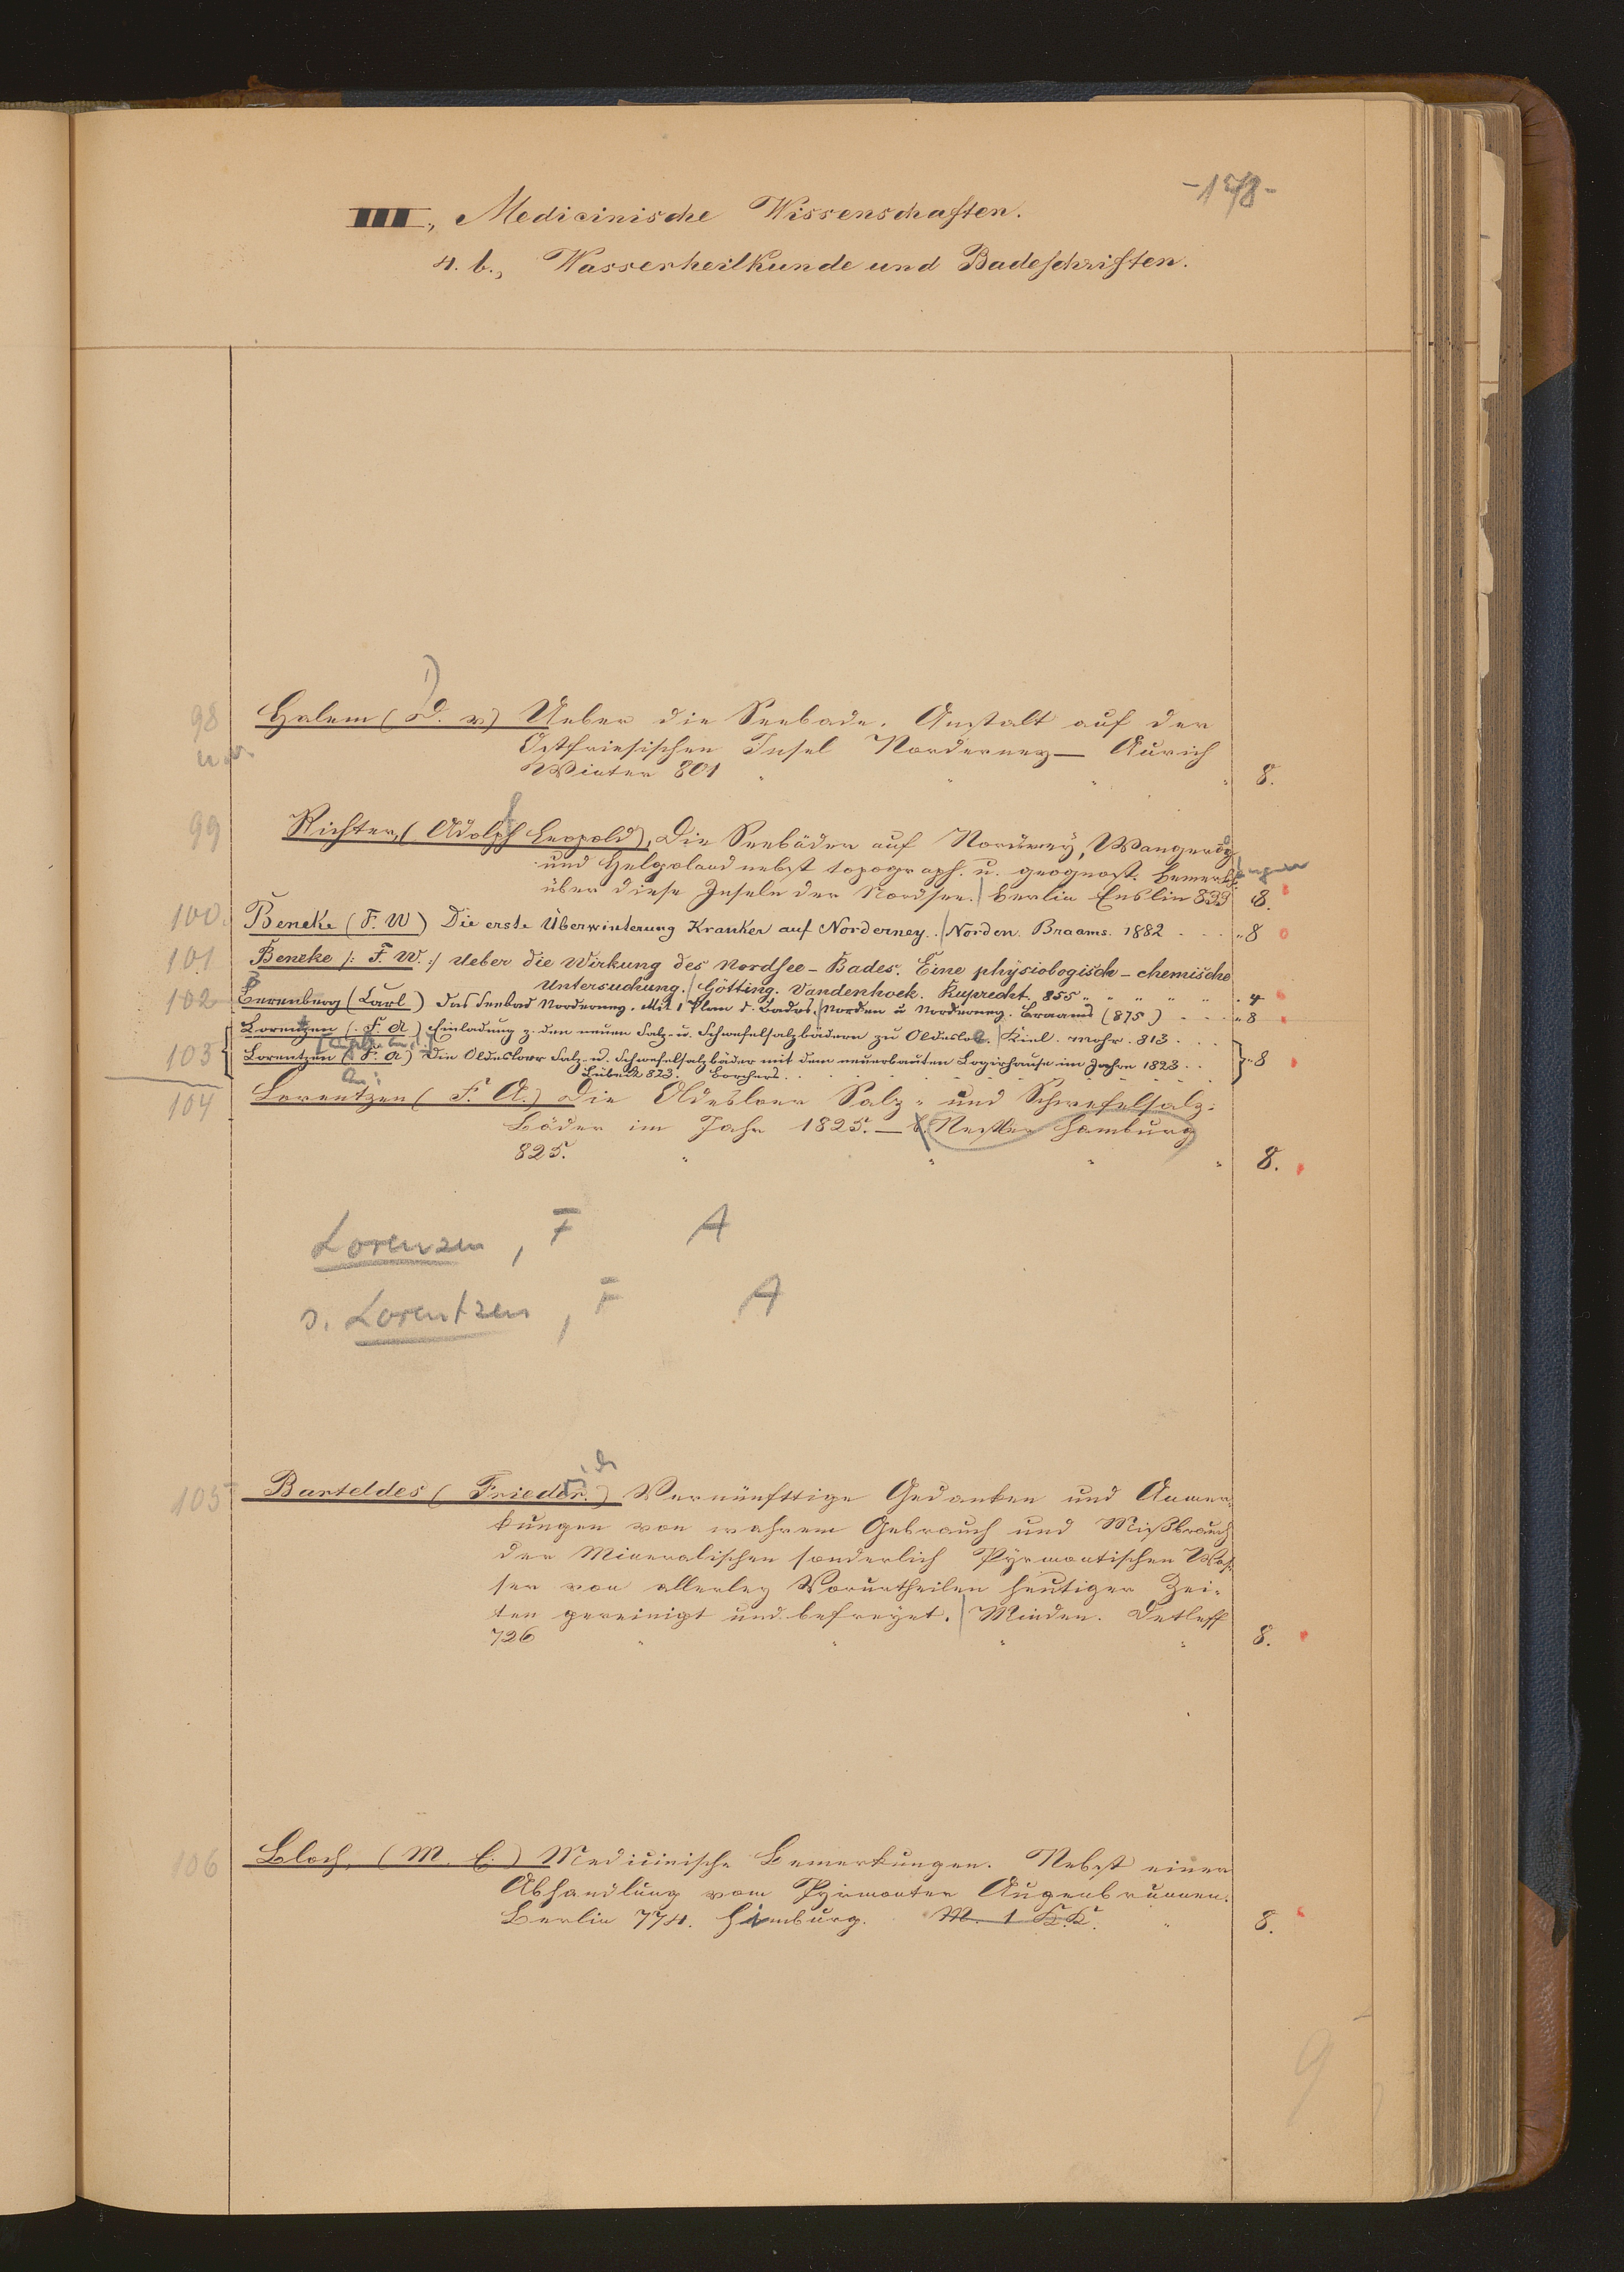 -178-
III., Medicinische Wissenschaften.
4. b., Wasserheilkunde und Badeschriften.
98 Halem (D. v) Ueber die Seebade-Anstalt auf der
Ostfriesischen Insel Norderney — Aurich
Winter 801 " " " " 8.
99 Richter, (Adolph Leopold), Die Seebäder auf Norderney, Wangeroog
und Helgoland nebst topograph. u. geognost. Bemerkungen
über diese Inseln der Nordsee. | Berlin Enslin 833 8.
100. Beneke (F. W) Die erste Überwinterung Kranker auf Norderney. | Norden. Braams. 1882 - - - „ 8
101 Beneke /: F. W. :/ Ueber die Wirkung des Nordsee-Bades. Eine physiologisch-chemische
Untersuchung. | Götting. Vandenhoek. Ruprecht. 855 " " " " " „ 4
102 Berenberg (Carl) Das Seebad Norderney. Mit 1 Plan d. Bades. | Norden u Norderney. Braams (875) - - - „ 8
Lorentzen (F. A) Einladung z. den neuen Salz- u. Schwefelsalzbädern zu Oldesloe. | Kiel. Mohr. 813. . . .
103 Lorentzen (F. A) Die Oldesloer Salz- u. Schwefelsalzbäder mit dem neuerbauten Logirhause im Jahre 1823. . } „ 8
Lübeck 823. Borchers. . . . . . . . .
104 Lorentzen (F. A.) Die Oldesloer Salz- und Schwefelsalz-
Bäder im Jahr 1825. — Nestler Hamburg
825. " " " " 8.
Lorenzen, F A
s. Lorentzen, F A
105 Barteldes (Frieder.) Vernünfftige Gedanken und Anmer-
kungen von wahrem Gebrauch und Mißbrauch
der Mineralischen sonderlich Pyrmontischen Was-
ser von allerley Vorurtheilen heutiger Zei-
ten gereinigt und befreyet. | Minden. Detleff
726 " " " " 8.
106 Bloch, (M. E.) Medicinische Bemerkungen. Nebst einer
Abhandlung vom Pyrmonter Augenbrunnen.
Berlin 774. Himburg. M. 1 K.K. " 8.
9